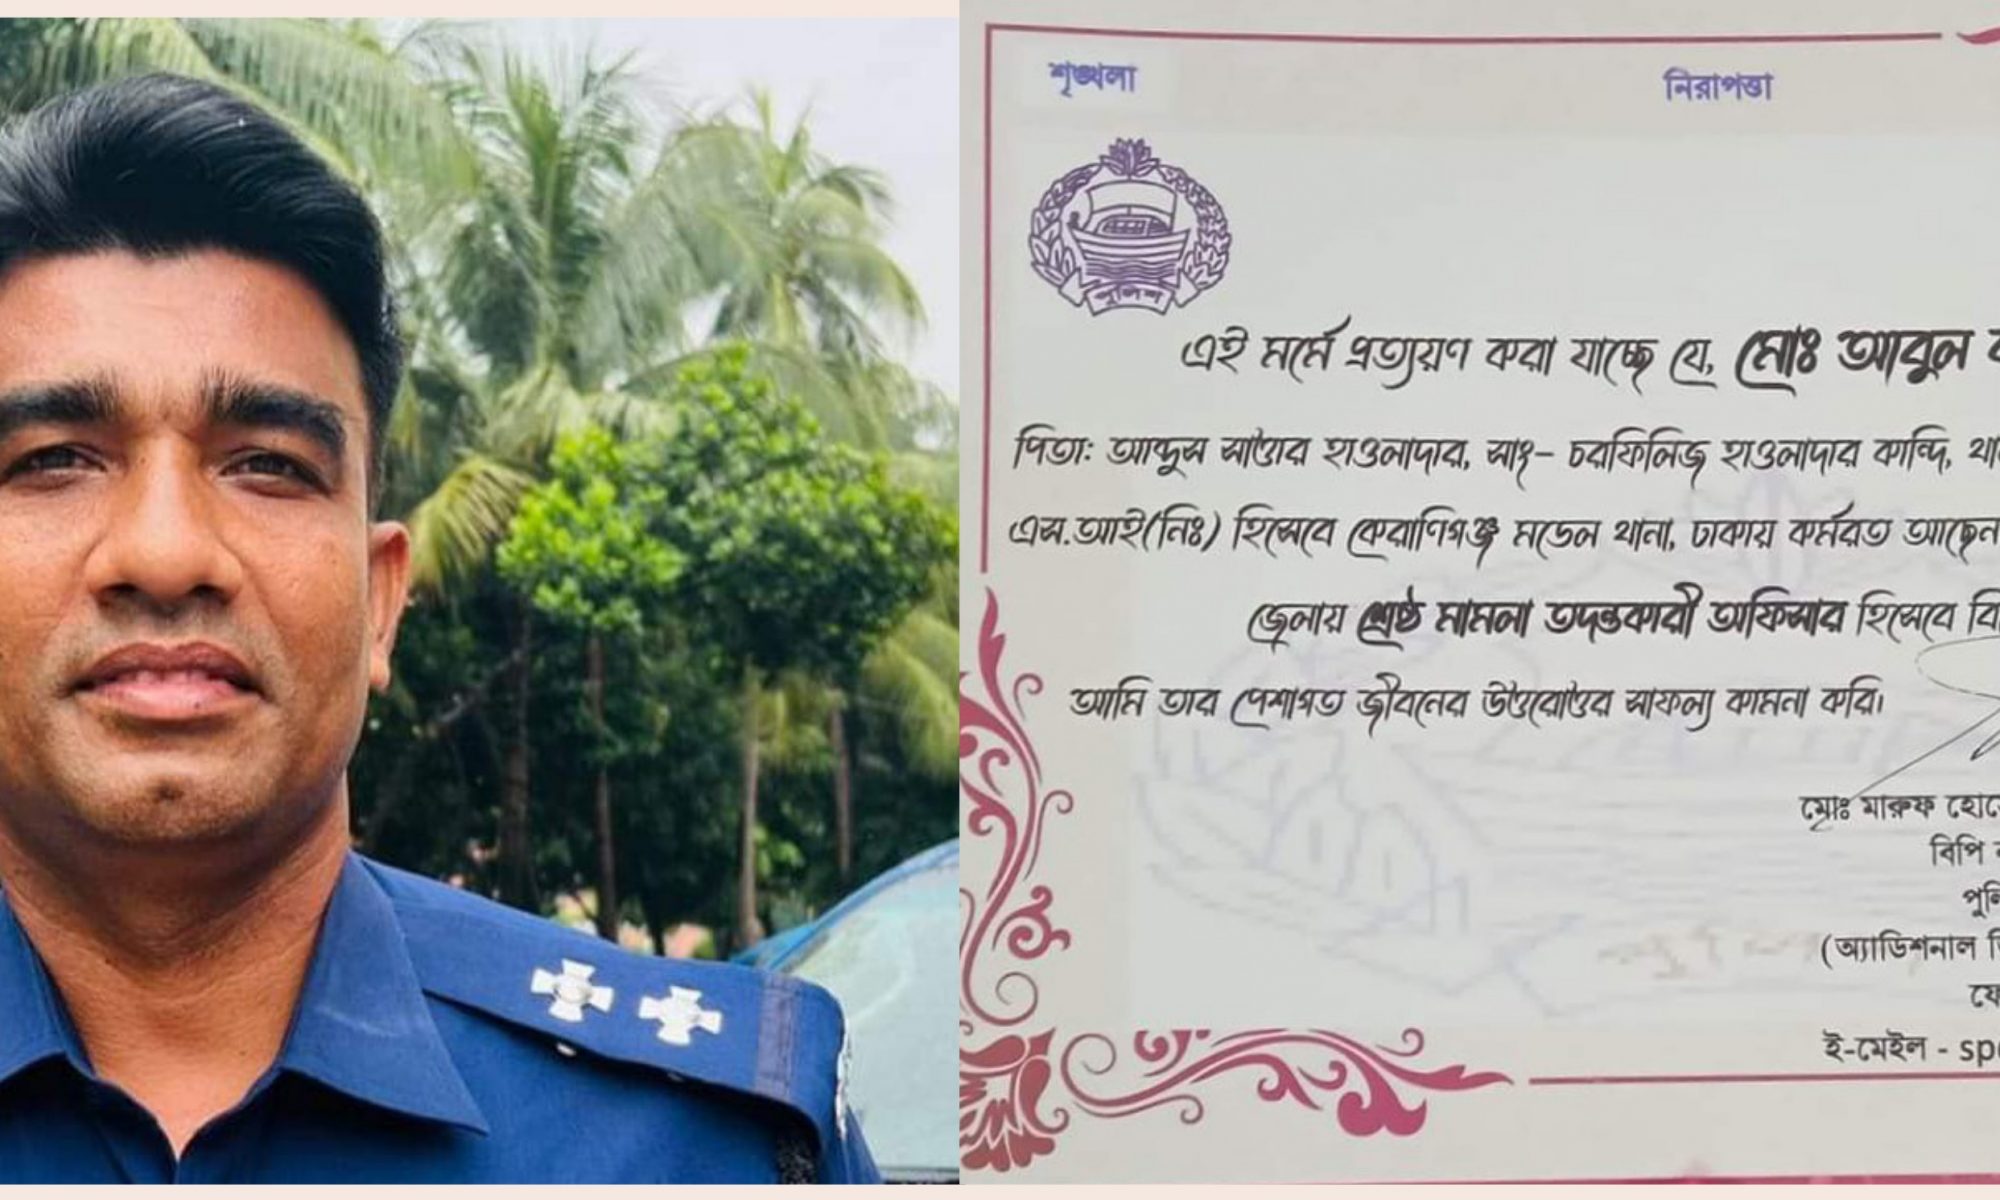 শৃঙ্খলা নিরাপত্তা
পুলিশ
এই মর্মে প্রত্যয়ণ করা যাচ্ছে যে, মোঃ আবুল
পিতা: আব্দুস সাত্তার হাওলাদার, সাং- চরফিলিজ হাওলাদার কান্দি,
এস.আই(নিঃ) হিসেবে কেরাণিগঞ্জ মডেল থানা, ঢাকায় কর্মরত আছেন
জেলায় শ্রেষ্ঠ মামলা তদন্তকারী অফিসার হিসেবে
আমি তার পেশাগত জীবনের উত্তরোত্তর সাফল্য কামনা করি।
মোঃ মারুফ
বিপি
(অ্যাডিশনাল
ই-মেইল -